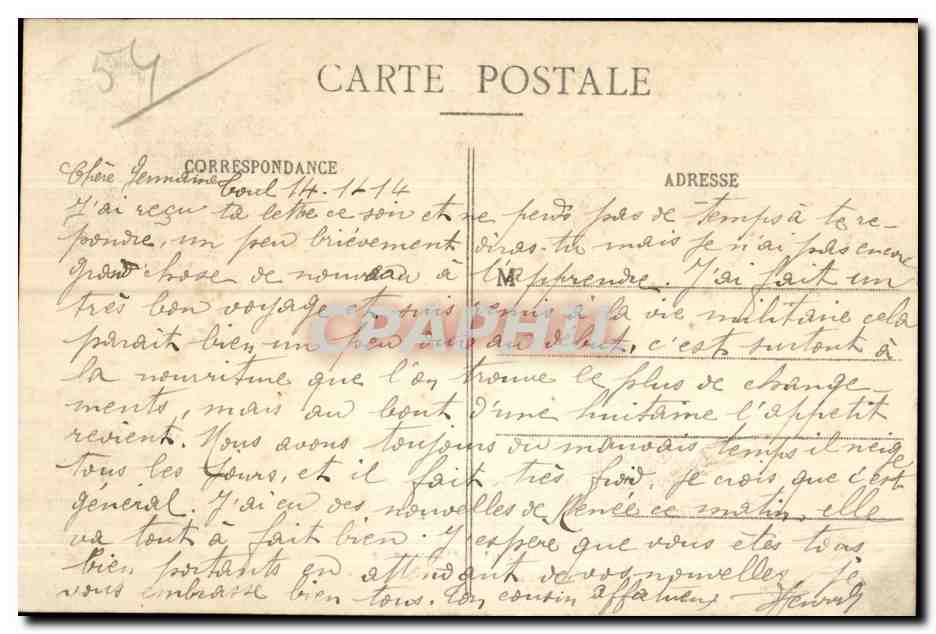 54
CARTE POSTALE
CORRESPONDANCE
ADRESSE
M
Chère Germaine Toul 14-1-14
J'ai reçu ta lettre ce soir et ne perds pas de temps à te re-
pondre, un peu brièvement diras-tu mais je n'ai pas encore
grand chose de nouveau à t'apprendre. J'ai fait un
très bon voyage et suis remis à la vie militaire cela
parait bien un peu dur au début, c'est surtout à
la nourriture que l'on trouve le plus de change-
ments, mais au bout d'une huitaine l'appetit
revient. Nous avons toujours du mauvais temps il neige
tous les jours, et il fait très froid, je crois que c'est
général. J'ai eu des nouvelles de Renée ce matin, elle
va tout à fait bien. J'espere que vous êtes tous
bien portants en attendant de vos nouvelles, je
vous embrasse bien tous. Ton cousin affectueux
CPAPHIL